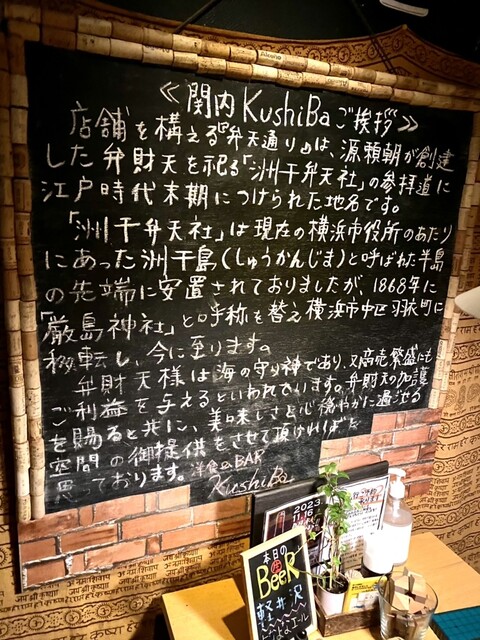 ≪関内KushiBaご挨拶≫
店舗を構える『弁天通り』は、源頼朝が創建
した弁財天を祀る「洲干弁天社」の参拝道に
江戸時代末期につけられた地名です。
「洲干弁天社」は現在の横浜市役所のあたり
にあった洲干島(しゅうかんじま)と呼ばれた半島
の先端に安置されておりましたが、1868年に
「厳島神社」と呼称を替え横浜市中区羽衣町に
移転し、今に至ります。
弁財天様は海の守り神であり、又商売繁盛にも
ご利益を与えるといわれています。弁財天の加護
を賜ると共に、美味しさと心穏やかに過せる
空間の御提供をさせて頂ければと
思っております。洋食&BAR
KushiBa
2023.
本日の
生
BeeR
軽井沢
エール